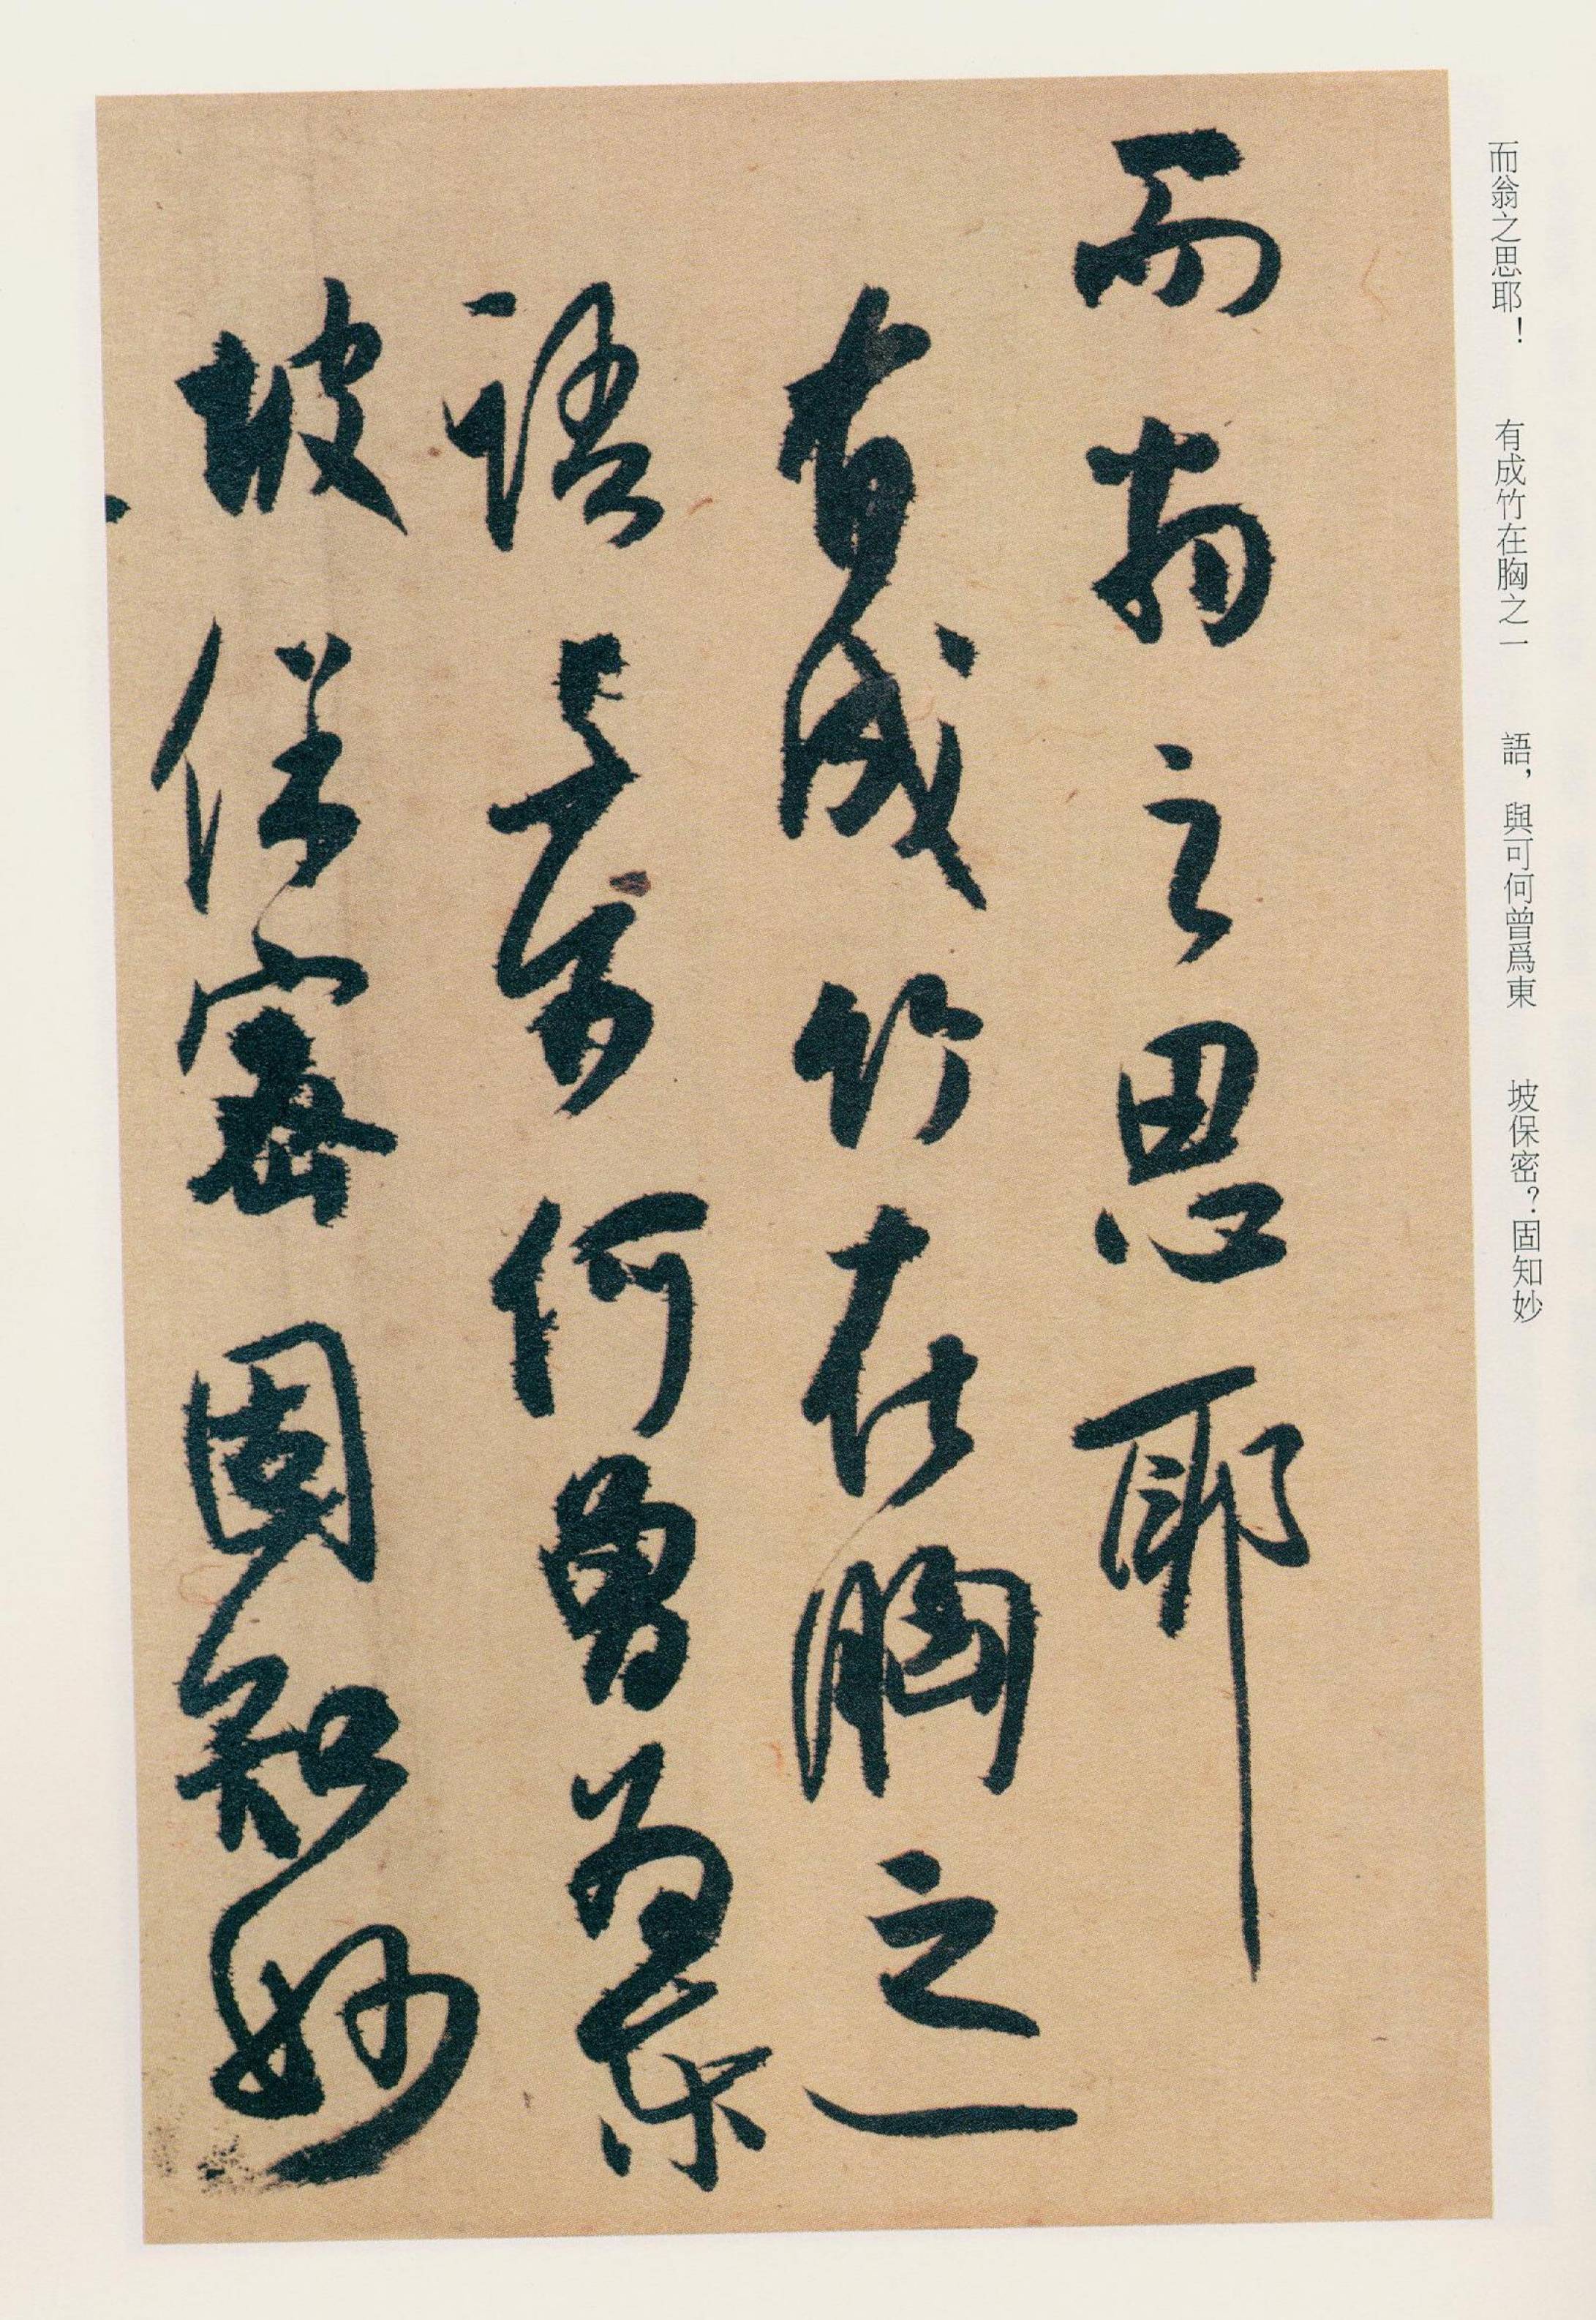 而翁之思耶！　有成竹在胸之一　語，與可何曾爲東　坡保密？固知妙
而翁之思耶
有成竹在胸之一
語與可何曾爲東
坡保密固知妙